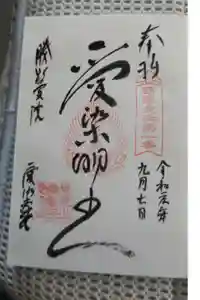 奉拝
令和元年
九月七日
愛染明王
勝鬘院
愛染堂